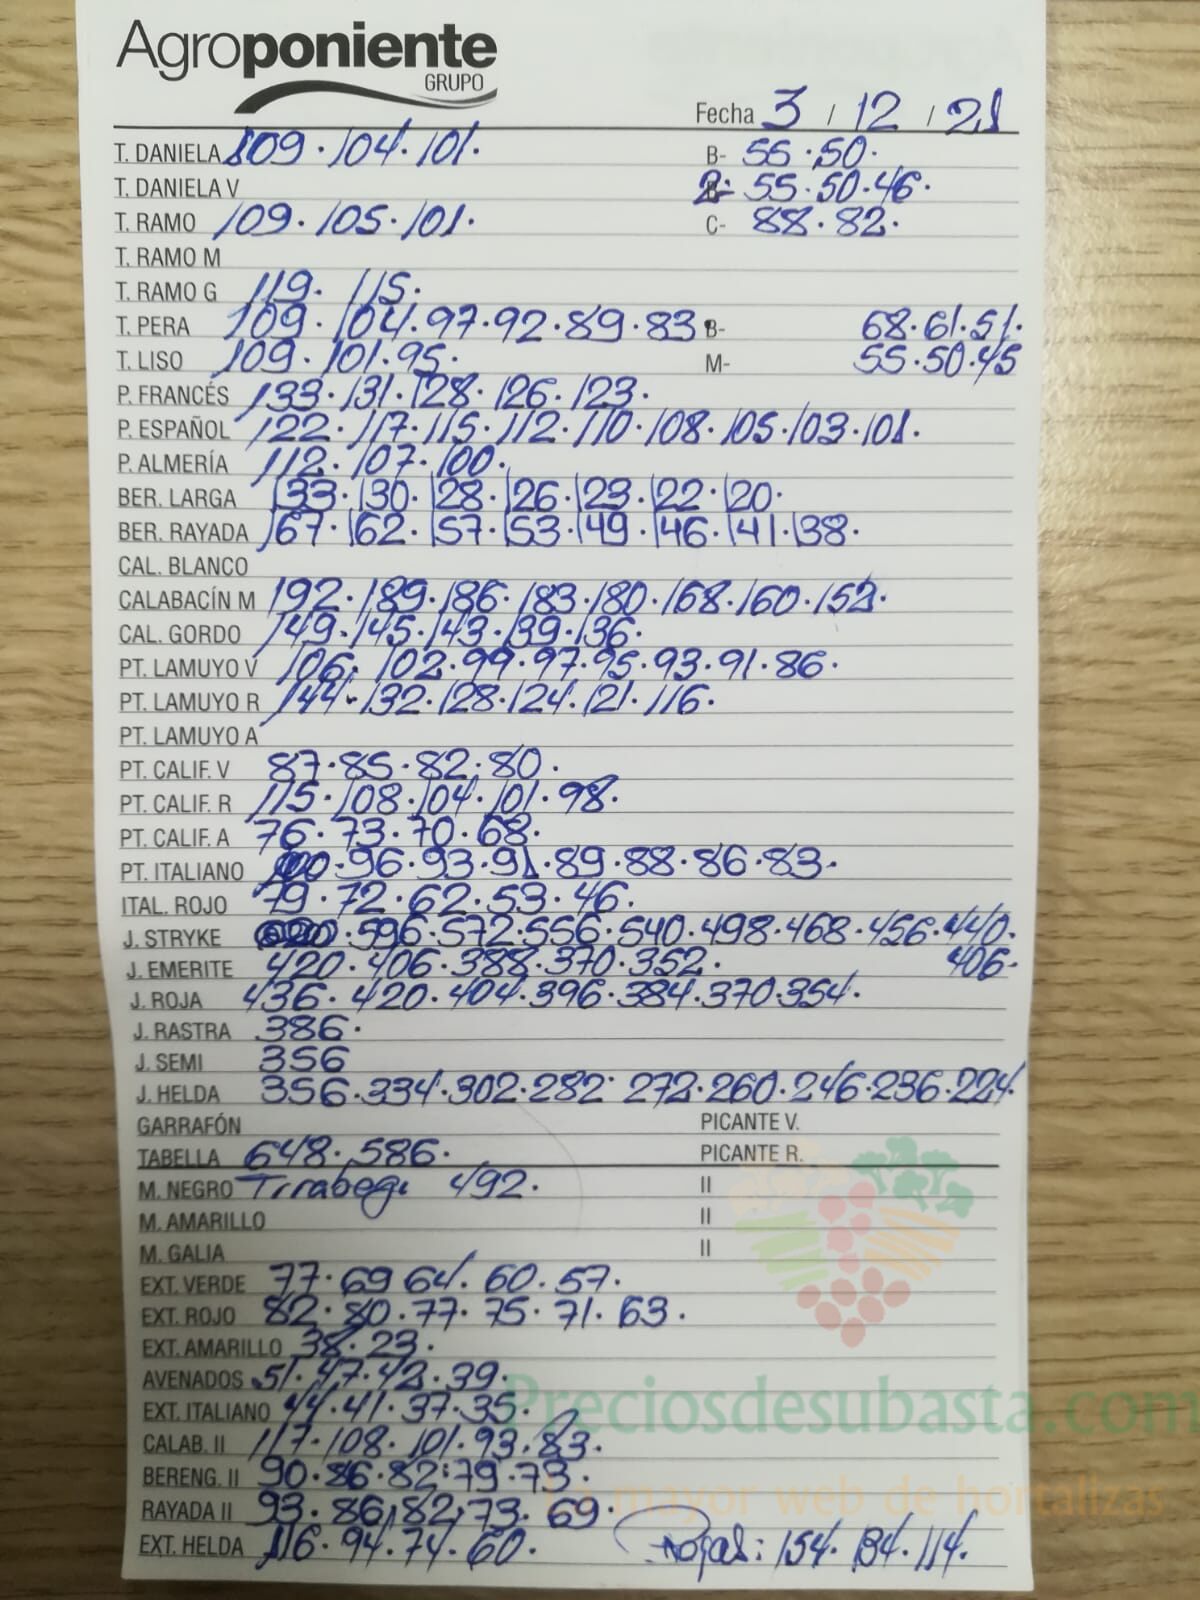 Agroponiente
GRUPO
Fecha 3 / 12 / 21
T. DANIELA 109 · 104 · 101 · B- 55 · 50 ·
T. DANIELA V 2: 55 · 50 · 46 ·
T. RAMO 109 · 105 · 101 · C- 88 · 82 ·
T. RAMO M
T. RAMO G 119 · 115 ·
T. PERA 109 · 104 · 97 · 92 · 89 · 83 · B- 68 · 61 · 51 ·
T. LISO 109 · 101 · 95 · M- 55 · 50 · 45
P. FRANCÉS 133 · 131 · 128 · 126 · 123 ·
P. ESPAÑOL 122 · 117 · 115 · 112 · 110 · 108 · 105 · 103 · 101 ·
P. ALMERÍA 112 · 107 · 100 ·
BER. LARGA 133 · 130 · 128 · 126 · 123 · 122 · 120 ·
BER. RAYADA 167 · 162 · 157 · 153 · 149 · 146 · 141 · 138 ·
CAL. BLANCO
CALABACÍN M 192 · 189 · 186 · 183 · 180 · 168 · 160 · 152 ·
CAL. GORDO 149 · 145 · 143 · 139 · 136 ·
PT. LAMUYO V 106 · 102 · 99 · 97 · 95 · 93 · 91 · 86 ·
PT. LAMUYO R 144 · 132 · 128 · 124 · 121 · 116 ·
PT. LAMUYO A
PT. CALIF. V 87 · 85 · 82 · 80 ·
PT. CALIF. R 115 · 108 · 104 · 101 · 98 ·
PT. CALIF. A 76 · 73 · 70 · 68 ·
PT. ITALIANO 100 · 96 · 93 · 91 · 89 · 88 · 86 · 83 ·
ITAL. ROJO 79 · 72 · 62 · 53 · 46 ·
J. STRYKE 620 · 596 · 572 · 556 · 540 · 498 · 468 · 456 · 440 ·
J. EMERITE 420 · 406 · 388 · 370 · 352 · 406 ·
J. ROJA 436 · 420 · 404 · 396 · 384 · 370 · 354 ·
J. RASTRA 386 ·
J. SEMI 356
J. HELDA 356 · 334 · 302 · 282 · 272 · 260 · 246 · 236 · 224 ·
GARRAFÓN PICANTE V.
TABELLA 648 · 586 · PICANTE R.
M. NEGRO Tirabegi 492 · II
M. AMARILLO II
M. GALIA II
EXT. VERDE 77 · 69 64 · 60 · 57 ·
EXT. ROJO 82 · 80 · 77 · 75 · 71 · 63 ·
EXT. AMARILLO 38 · 23 ·
AVENADOS 51 · 47 · 42 · 39 ·
EXT. ITALIANO 44 · 41 · 37 · 35 ·
Preciosdesubasta.com
CALAB. II 117 · 108 · 101 · 93 · 83 ·
BERENG. II 90 · 86 · 82 · 79 · 73 ·
La mayor web de hortalizas
RAYADA II 93 · 86 · 82 · 73 · 69 ·
EXT. HELDA 116 · 94 · 74 · 60 · Rojas: 154 · 134 · 114 ·